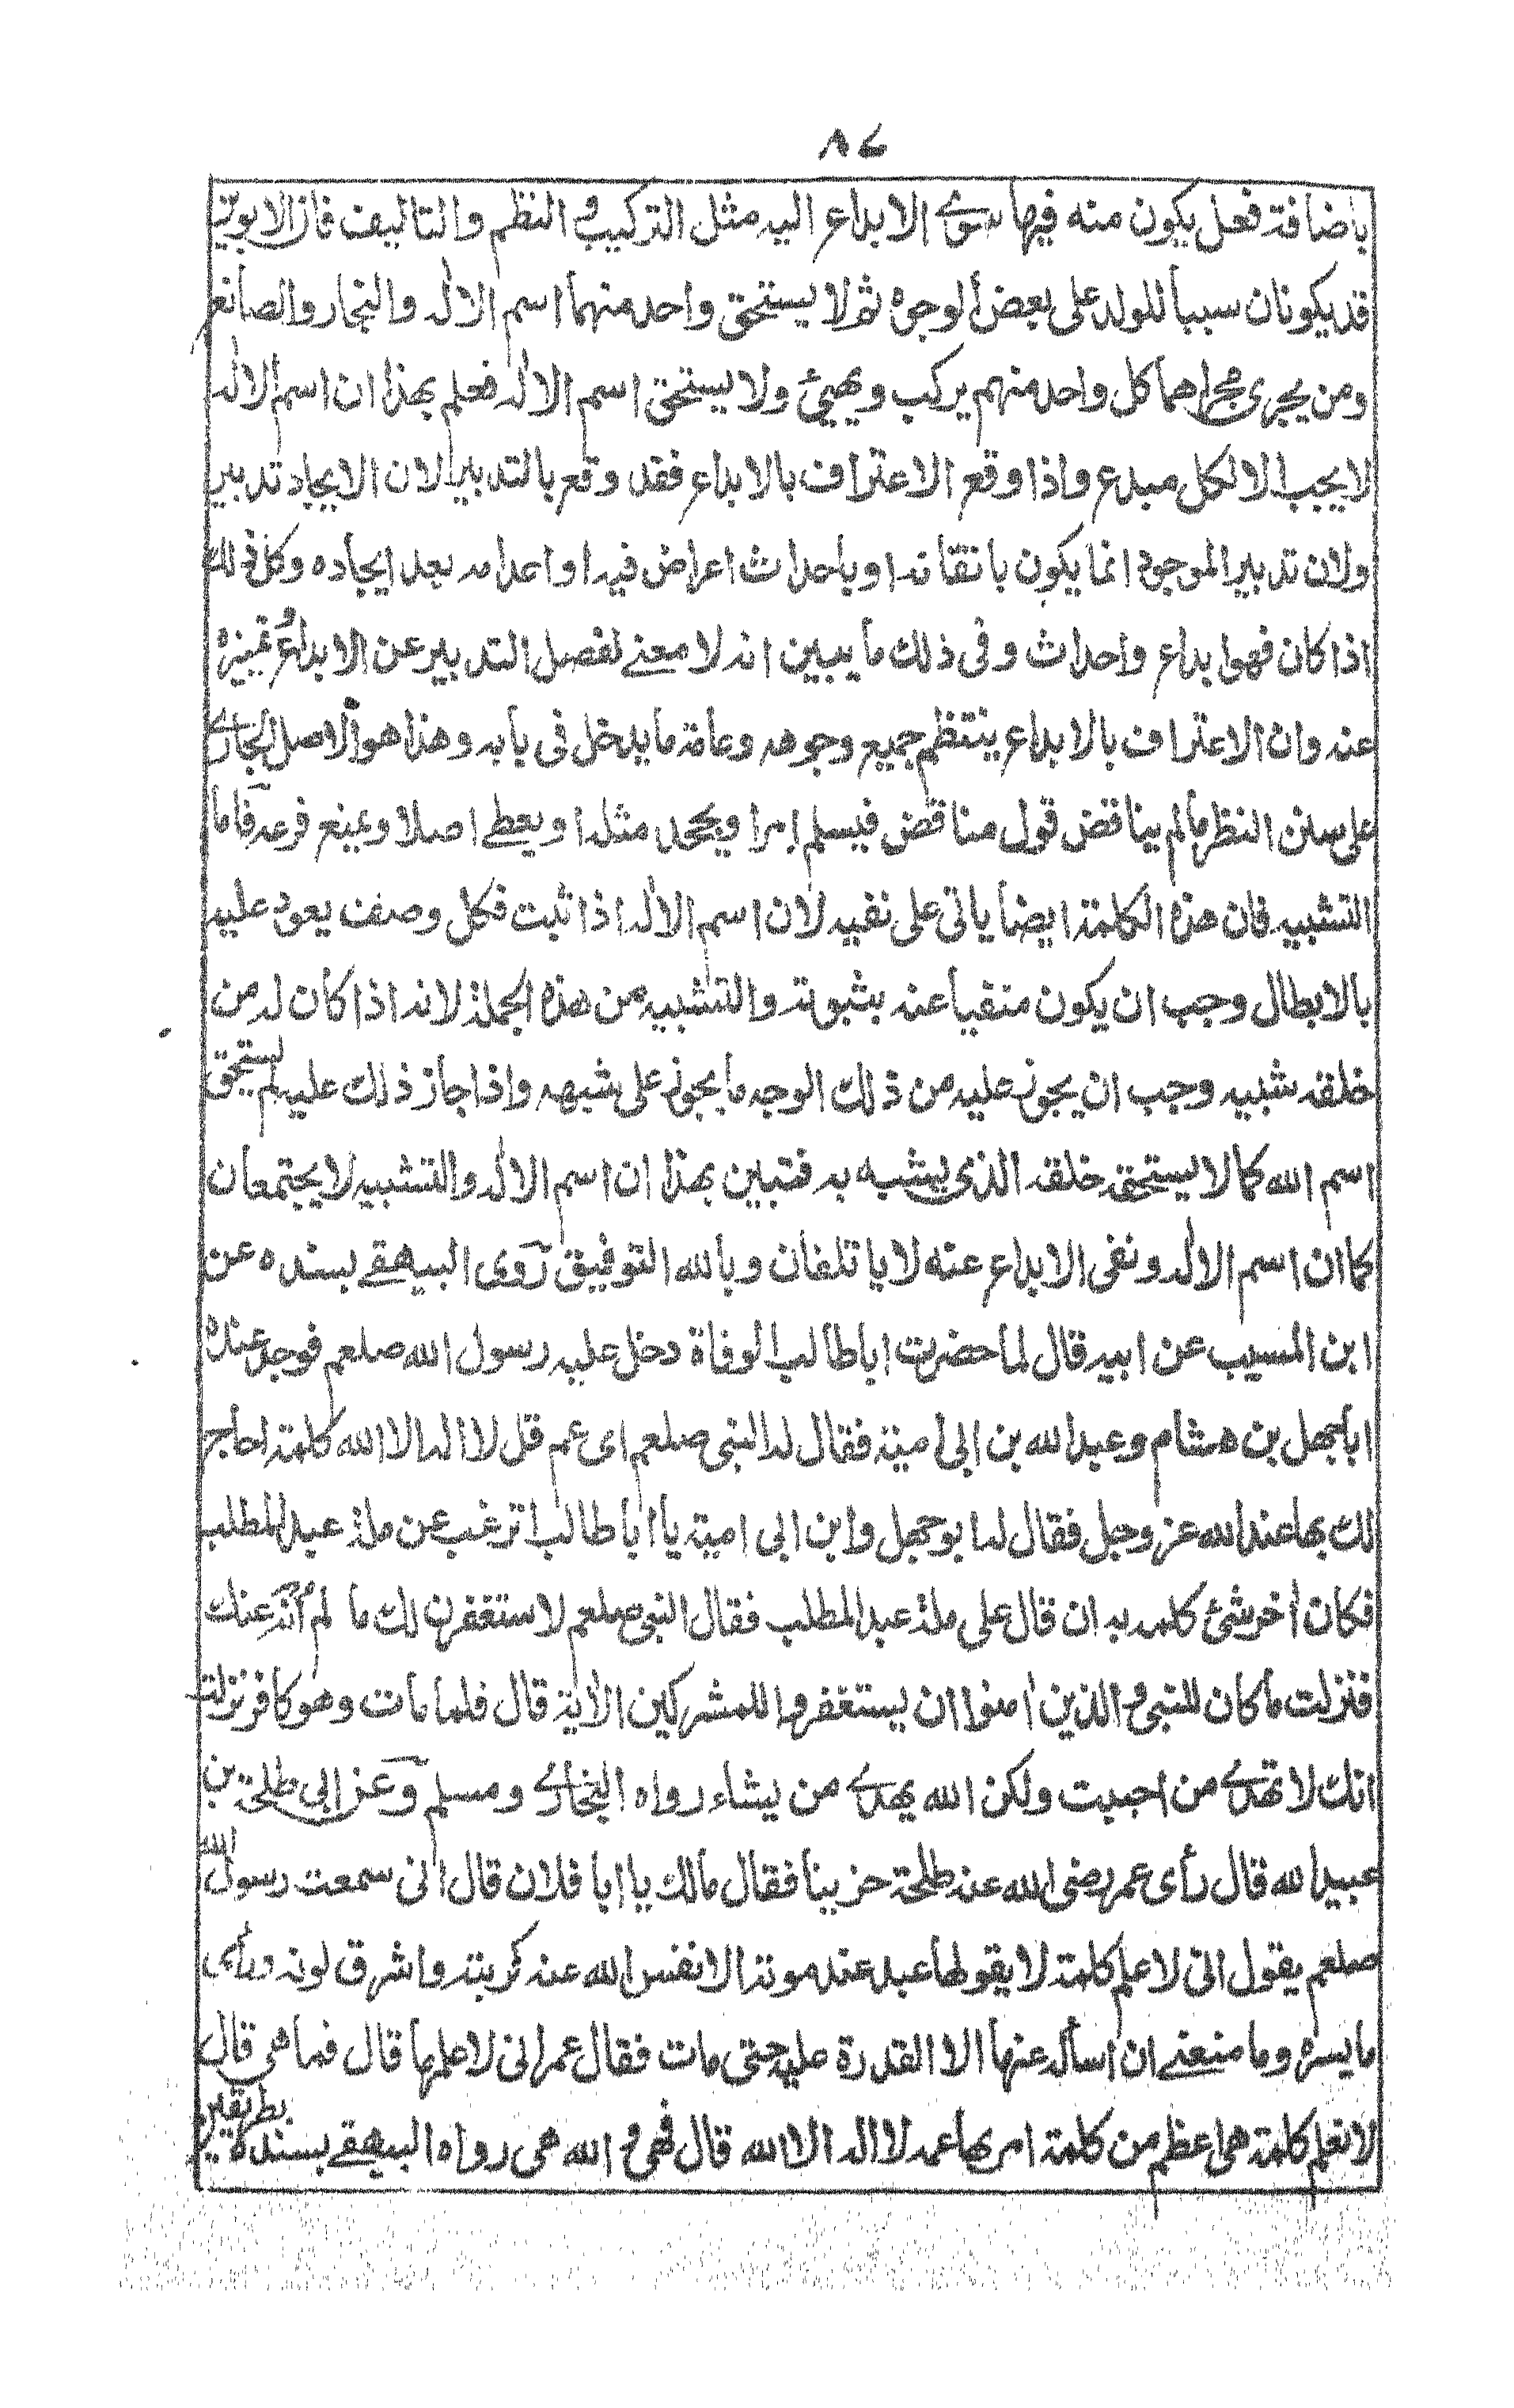 ٨٧
باضافة فعل يكون منه فيها سوى الابداع اليه مثل التركيب و النظم والتاليف فان الابوين
قد يكونان سببا للولد على بعض الوجوه ثم لا يستحق واحد منهما اسم الاله والنجار والصانع
ومن يجرى مجراهما كل واحد منهم يركب ويهيئ ولا يستحق اسم الاله فعلم بهذا ان اسم الاله
لا يجب الا لكل مبدع واذا وقع الاعتراف بالابداع فقد وقع بالتدبير لان الايجاد تدبير
ولان تدبير الموجود انما يكون باتقانه او باحداث اعراض فيه او اعدامه بعد ايجاده وكل ذلك
اذا كان فهو ابداع واحداث وفى ذلك ما يبين انه لا معنے لفصل التدبير عن الابداع و تميزه
عنه وان الاعتراف بالابداع ينتظم جميع وجوهه وعامة ما يدخل فى بابه وهذا هو الاصل الجارى
على سنن النظر مالم يناقض قول مناقض فيسلم امرا ويجحد مثله او يعطے اصلا ويمنع فرعه فاما
التشبيه فان هذه الكلمة ايضا ياتى على نفيه لان اسم الاله اذا ثبت فكل وصف يعود عليه
بالابطال وجب ان يكون منفيا عنه بثبوته والتشبيه من هذه الجملة لانه اذا كان له من
خلقه شبيه وجب ان يجوز عليه من ذلك الوجه ما يجوز على شبهه واذا جاز ذلك عليه لم يستحق
اسم الله كما لا يستحقه خلقه الذى يشبه به فتبين بهذا ان اسم الاله والتشبيه لا يجتمعان
كما ان اسم الاله ونفى الابداع عنه لا ياتلفان وبالله التوفيق روى البيهقے بسنده عن
ابن المسيب عن ابيه قال لما حضرت اباطالب الوفاة دخل عليه رسول الله صلعم فوجد عنده
اباجهل بن هشام وعبد الله بن ابى امية فقال له النبى صلعم اى عم قل لا اله الا الله كلمة احاج
لك بها عند الله عز وجل فقال له ابو جهل وابن ابى امية يا ابا طالب اترغب عن ملة عبد المطلب
فكان أخر شئ كلمه به ان قال على ملة عبد المطلب فقال النبى صلعم لاستغفرن لك ما لم انه عنك
فنزلت ما كان للنبى و الذين امنوا ان يستغفروا للمشركين الأية قال فلما مات وهو كافر نزلت
انك لا تهدے من احببت ولكن الله يهدے من يشاء رواه البخارے ومسلم وعن ابى طلحة بن
عبيد الله قال رأى عمر رضى الله عنه طلحة حزينا فقال مالك يا ابا فلان قال انى سمعت رسول الله
صلعم يقول انى لاعلم كلمة لا يقولها عبد عند موته الا نفس الله عنه كربته واشرق لونه ورأى
ما يسره وما منعنے ان اسأله عنها الا القدرة عليه حتى مات فقال عمر انى لاعلمها قال فما هى قال
لا نعلم كلمة هى اعظم من كلمة امر بها عمه لا اله الا الله قال فهى و الله هى رواه البيهقے بسنده بطريقين